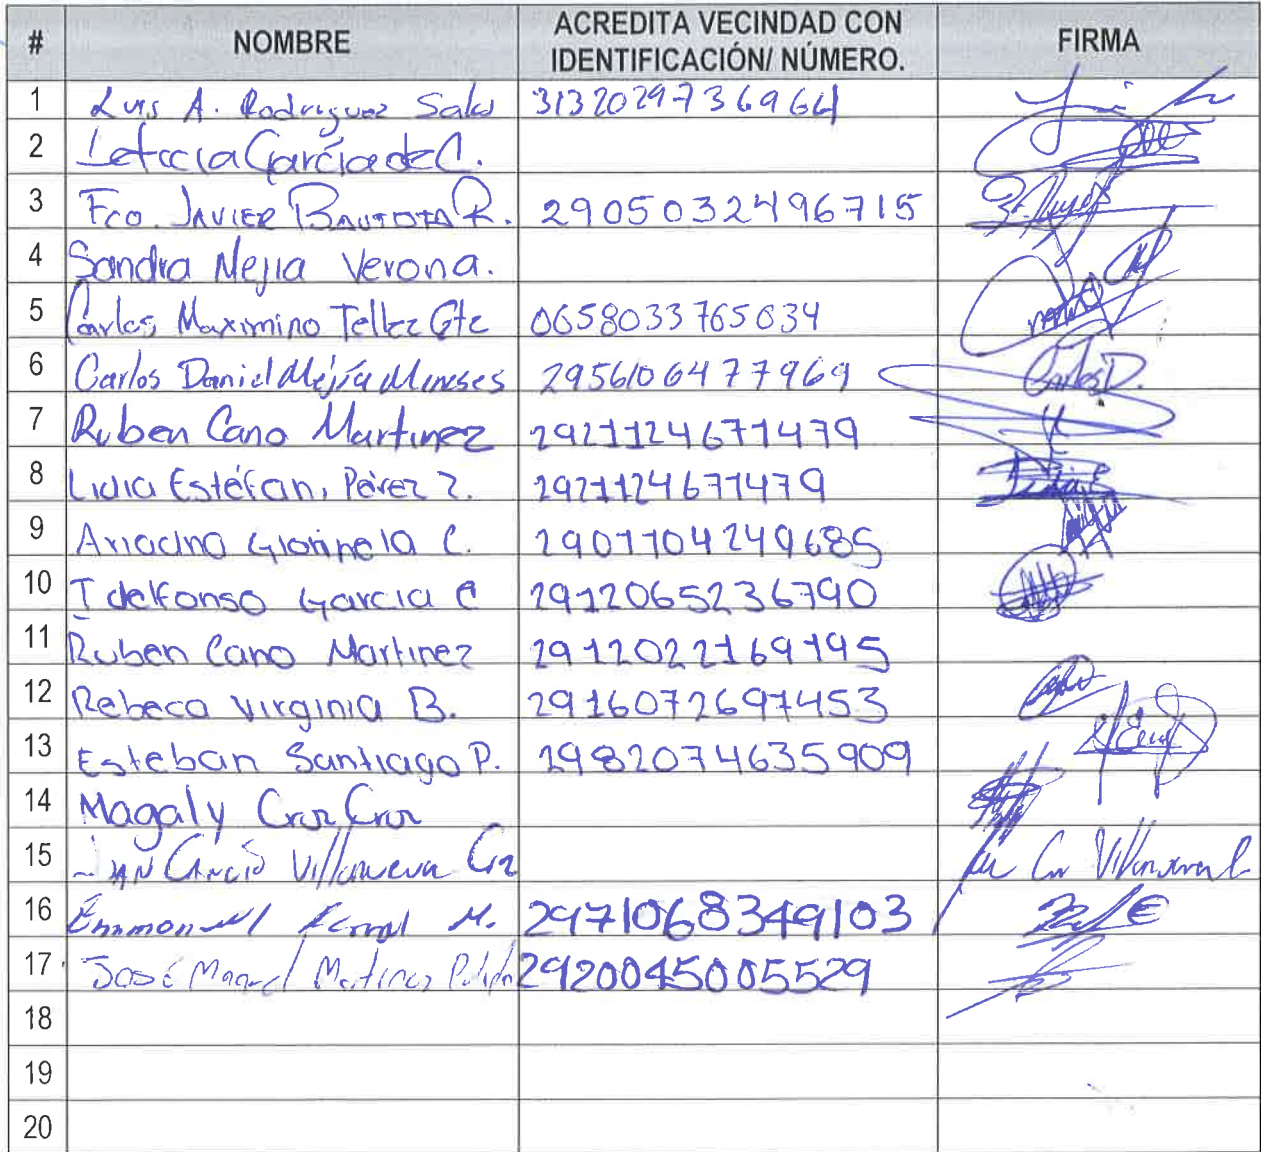 # NOMBRE ACREDITA VECINDAD CON IDENTIFICACIÓN/ NÚMERO. FIRMA
1 Luis A. Rodriguez Salas 3132029736964
2 Leticia García de C.
3 Fco. JAVIER BAUTISTA R. 2905032496715
4 Sandra Mejia Verona.
5 Carlos Maximino Tellez Gtz 0658033765034
6 Carlos Daniel Mejía Meneses 2956106477969 Carlos D.
7 Ruben Cano Martinez 2921124671479
8 Lidia Estéfani Pérez Z. 2921124671479
9 C. 2901104249685
10 Idelfonso Garcia C 2912065236790
11 Ruben Cano Martinez 2912022169195
12 Rebeca Virginia B. 2916072697453
13 Esteban Santiago P. 2982074635909
14 Magaly Cruz Cruz
15 Villanueva Villanueva
16 M. 2971068349103
17 José Martinez 2920045005529
18
19
20